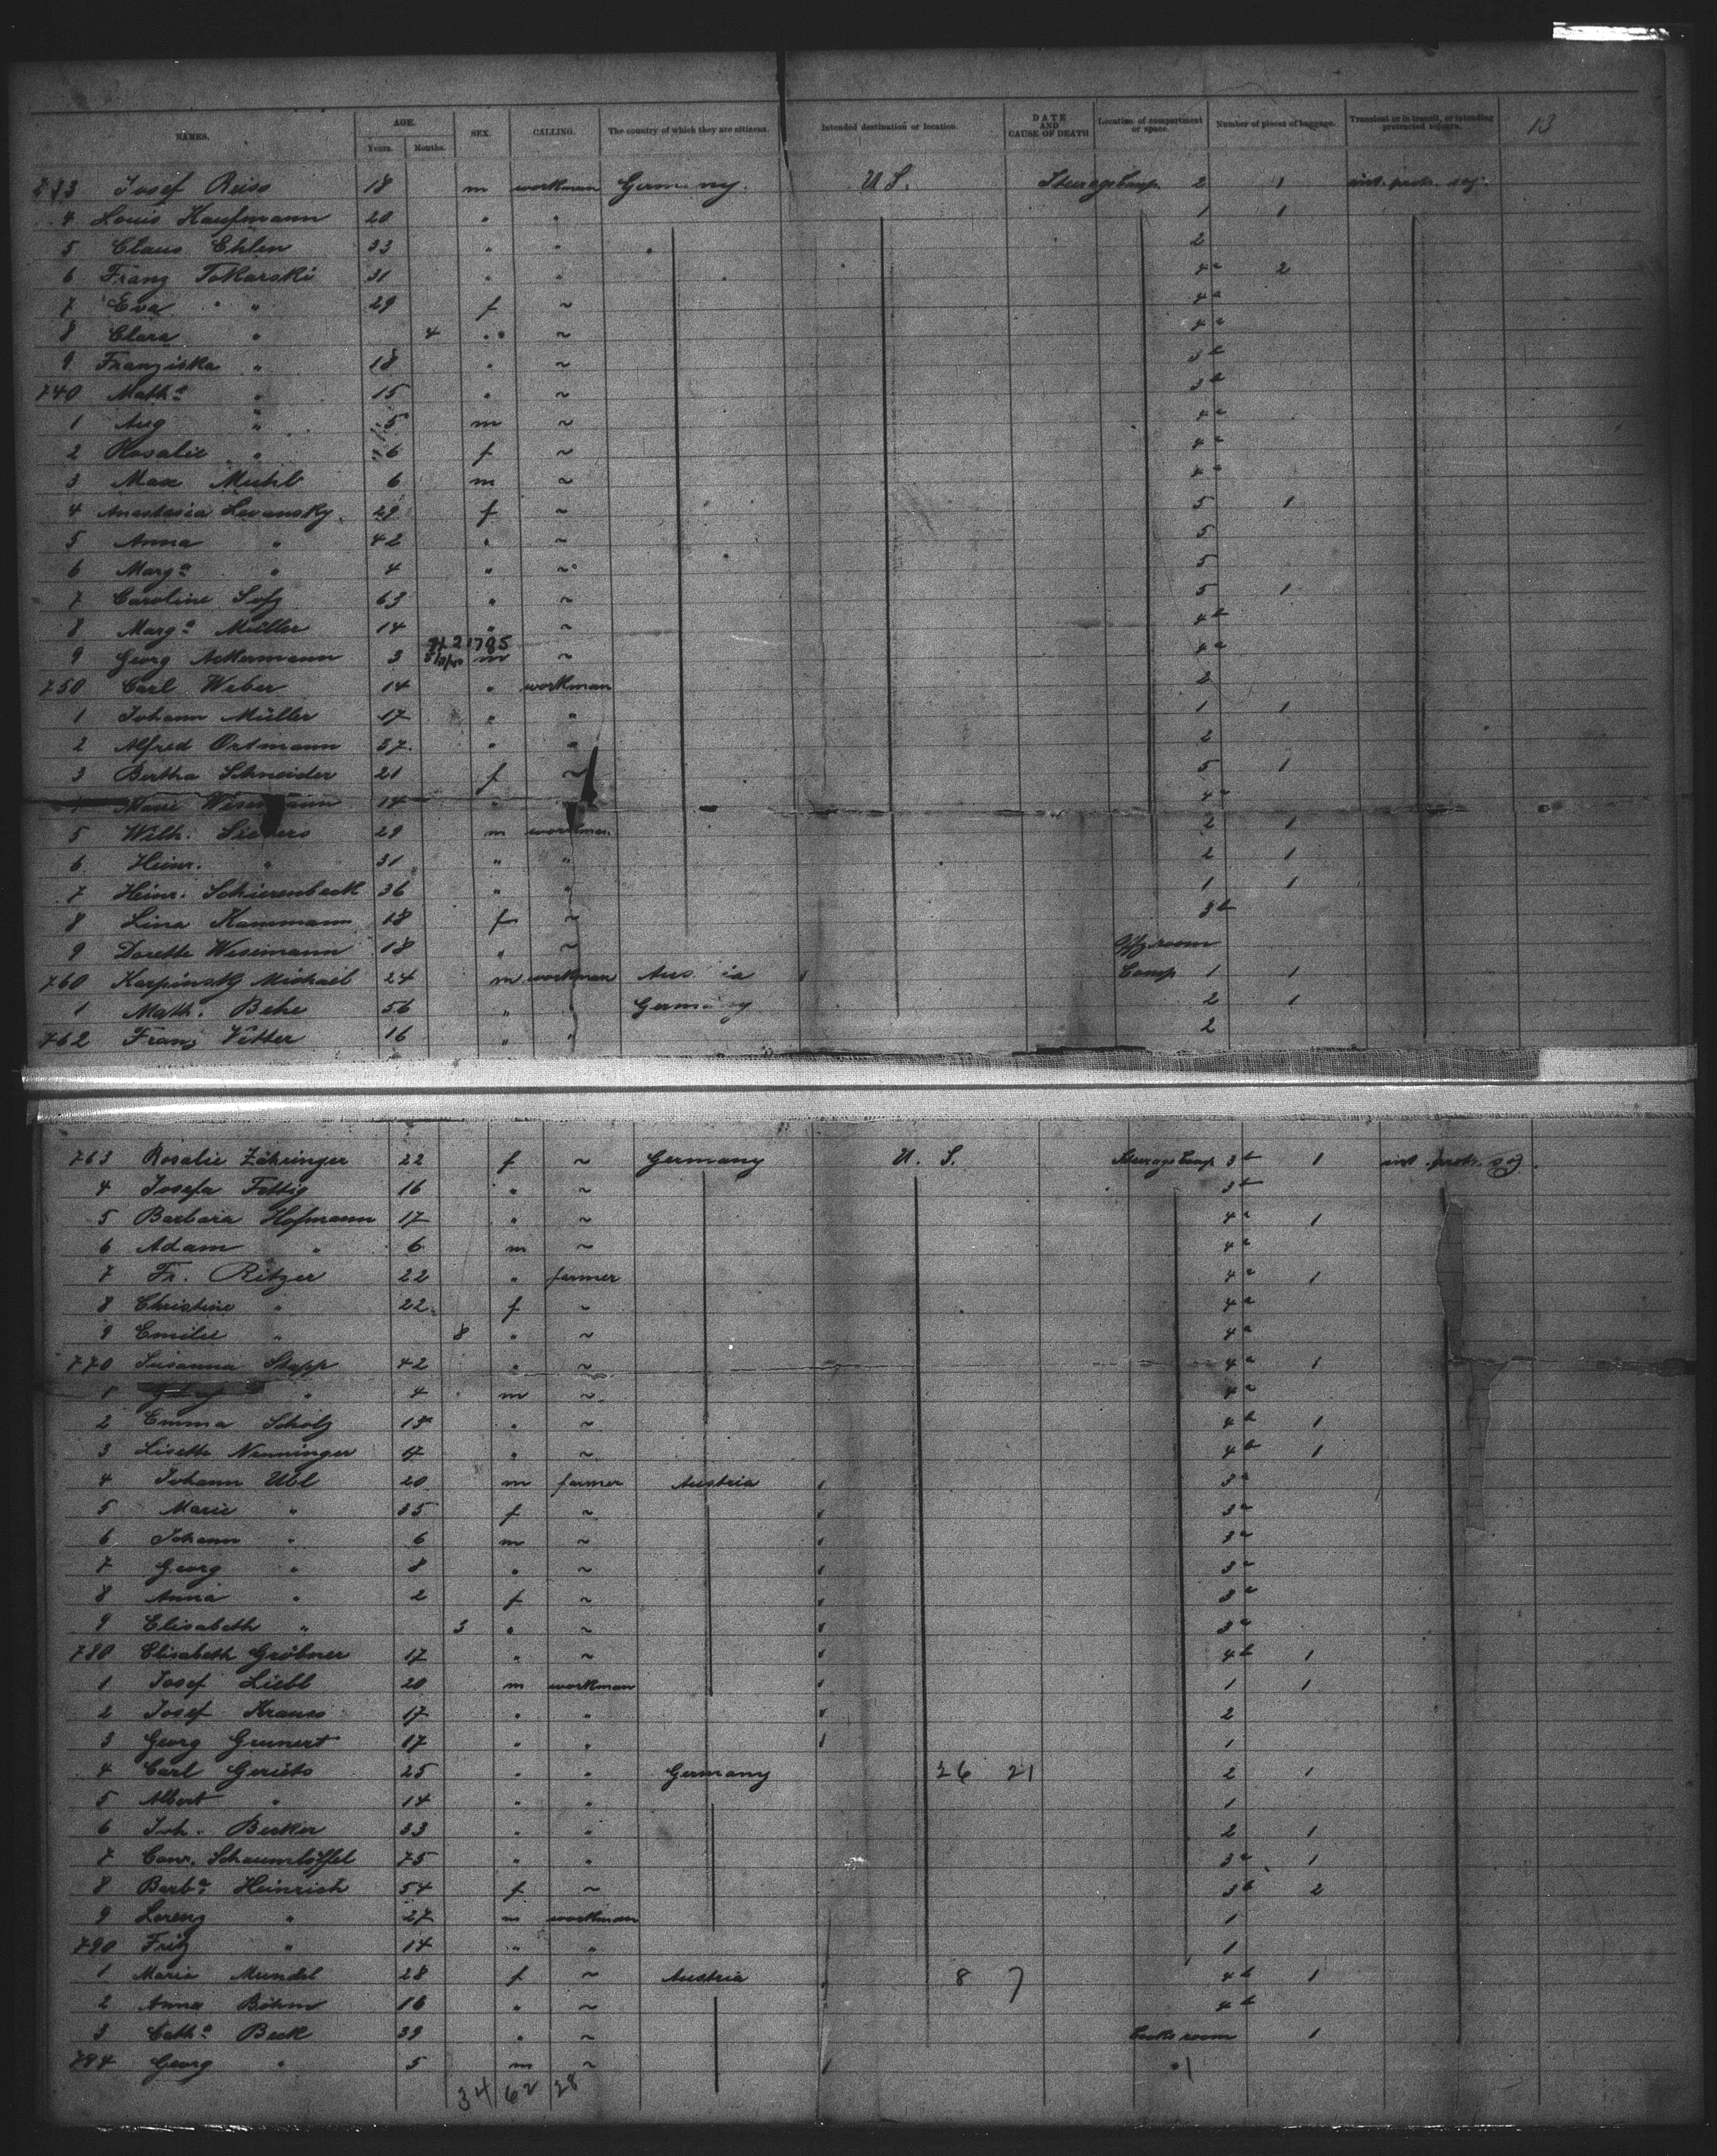 NAMES. AGE. Years. Months. SEX. CALLING. The country of which they are citizens. Intended destination or location. DATE AND CAUSE OF DEATH Location of compartment or space. Number of pieces of baggage. Transient or in transit, or intending protracted sojourn. 13
733 Josef Reiss 18 m workman Germany. U S. Steerage Comp. 2 1 int. protr. soj.
4 Louis Kaufmann 20 " " 1 1
5 Claus Ehlen 33 " " 2
6 Franz Tokarski 31 " " 4a 2
7 Eva " 29 f ~ 4a
8 Clara " 4 " ~ 4a
9 Franziska " 18 " ~ 3b
740 Matha " 15 " ~ 3b
1 Aug " 5 m ~ 4a
2 Rosalie " 6 f ~ 4a
3 Max Muhl 6 m ~ 4a
4 Anastasia Levansky 29 f ~ 5 1
5 Anna " 42 " ~ 5
6 Marga " 4 " ~ 5
7 Caroline 63 " ~ 5 1
8 Marga Müller 14 " ~ 4b
9 Georg Ackermann 3 m ~ 4a
750 Carl Weber 14 " workman 2
1 Johann Müller 17 " " 1 1
2 Alfred Ortmann 37 " " 2
3 Bertha Schneider 21 f ~ 5 1
Marie Wesemann 14 " 4a
5 Wilh. Siemers 29 m workman 2 1
6 Heinr. " 31 " " 2 1
7 Heinr. Schierenbeck 36 " " 1 1
8 Lina Kammann 18 f ~ 3b
9 Dorette Wesemann 18 " ~ room
760 Karpinsky Michael 24 m workman Aus ia Comp 1 1
1 Math. Behe 56 " Germany 2 1
762 Franz Vetter 16 " " 2
763 Rosalie Zähringer 22 f ~ Germany U. S. Steerage Comp 3b 1 int. protr. soj.
4 Josefa Fettig 16 " ~ 3b
5 Barbara Hofmann 17 " ~ 4a 1
6 Adam " 6 m ~ 4a
7 Fr. Ritzer 22 " farmer 4a 1
8 Christine " 22 f ~ 4a
9 Emilie " 8 " ~ 4a
770 Susanna Stapp 42 " ~ 4a 1
1 " 4 m ~ 4a
2 Emma Scholz 15 " ~ 4b 1
3 Lisette Nenninger 17 " ~ 4b 1
4 Johann Übl 20 m farmer Austria 3a
5 Marie " 35 f ~ 3a
6 Johann " 6 m ~ 3a
7 Georg " 8 " ~ 3a
8 Anna " 2 f ~ 3a
9 Elisabeth " 3 " ~ 3a
780 Elisabeth Gröbner 17 " ~ 4b 1
1 Josef Liebl 20 m workman 1 1
2 Josef Krauss 17 " " 2
3 Georg Grunert 17 " " 1
4 Carl Geriets 25 " " Germany 26 21 2 1
5 Albert " 14 " " 1
6 Joh. Becker 33 " " 2 1
7 Conr. Schaumlöffel 75 " " 3a 1
8 Barba Heinrich 54 f ~ 3b 2
9 Lorenz " 27 m workman 1
790 Fritz " 14 " " 1
1 Maria Mundel 28 f ~ Austria 8 7 4b 1
2 Anna Böhm 16 " ~ 4b
3 Catha Beck 39 " ~ Cooks room 1
794 Georg " 5 m ~ " 1
34 62 28